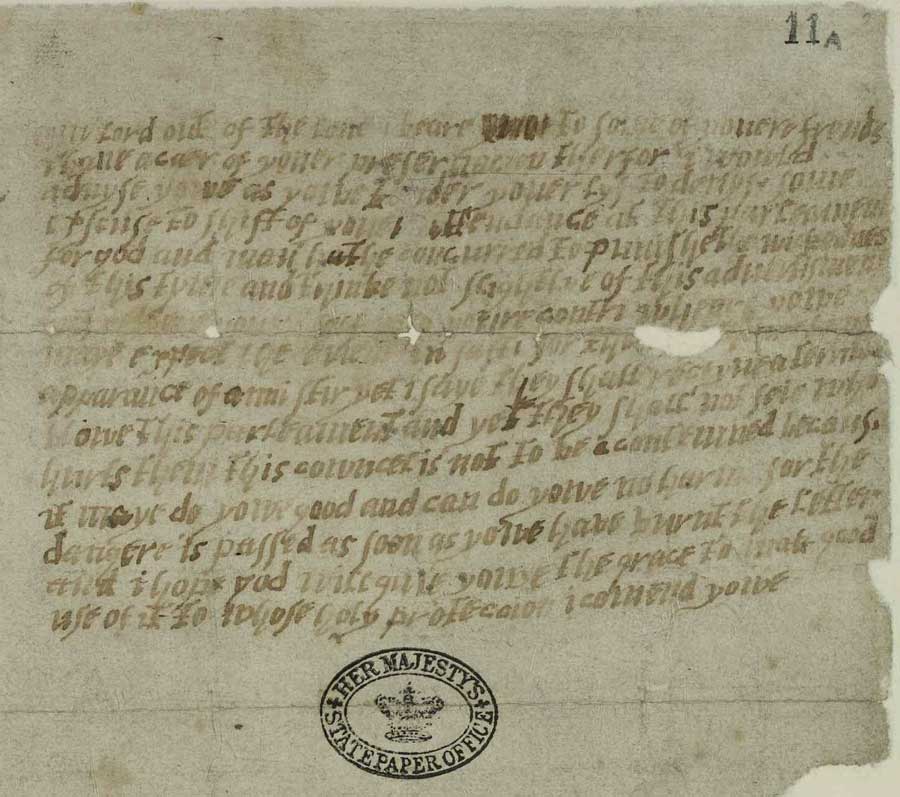 11A
lord out of the love i beare to some of youere frends
i have a caer of youer preseruacion therfor i would
advyse yowe as yowe tender youer lyf to devys some
excuse to shift of youer attendance at this parleament
for god and man hathe concurred to punishe the wickednes
of this tyme and thinke not slightlye of this advertisment
contri wheare yowe
maye expect the event in safti for
apparance of anni stir yet i saye they shall receyve a terrible
blowe this parleament and yet they shall not seie who
hurts them this cowncel is not to be acontemned because
it maye do yowe good and can do yowe no harme for the
dangere is passed as soon as yowe have burnt the letter
and i hope god will give yowe the grace to mak good
use of it to whose holy proteccion i comend yowe
HER MAJESTY'S
STATE PAPER OFFICE